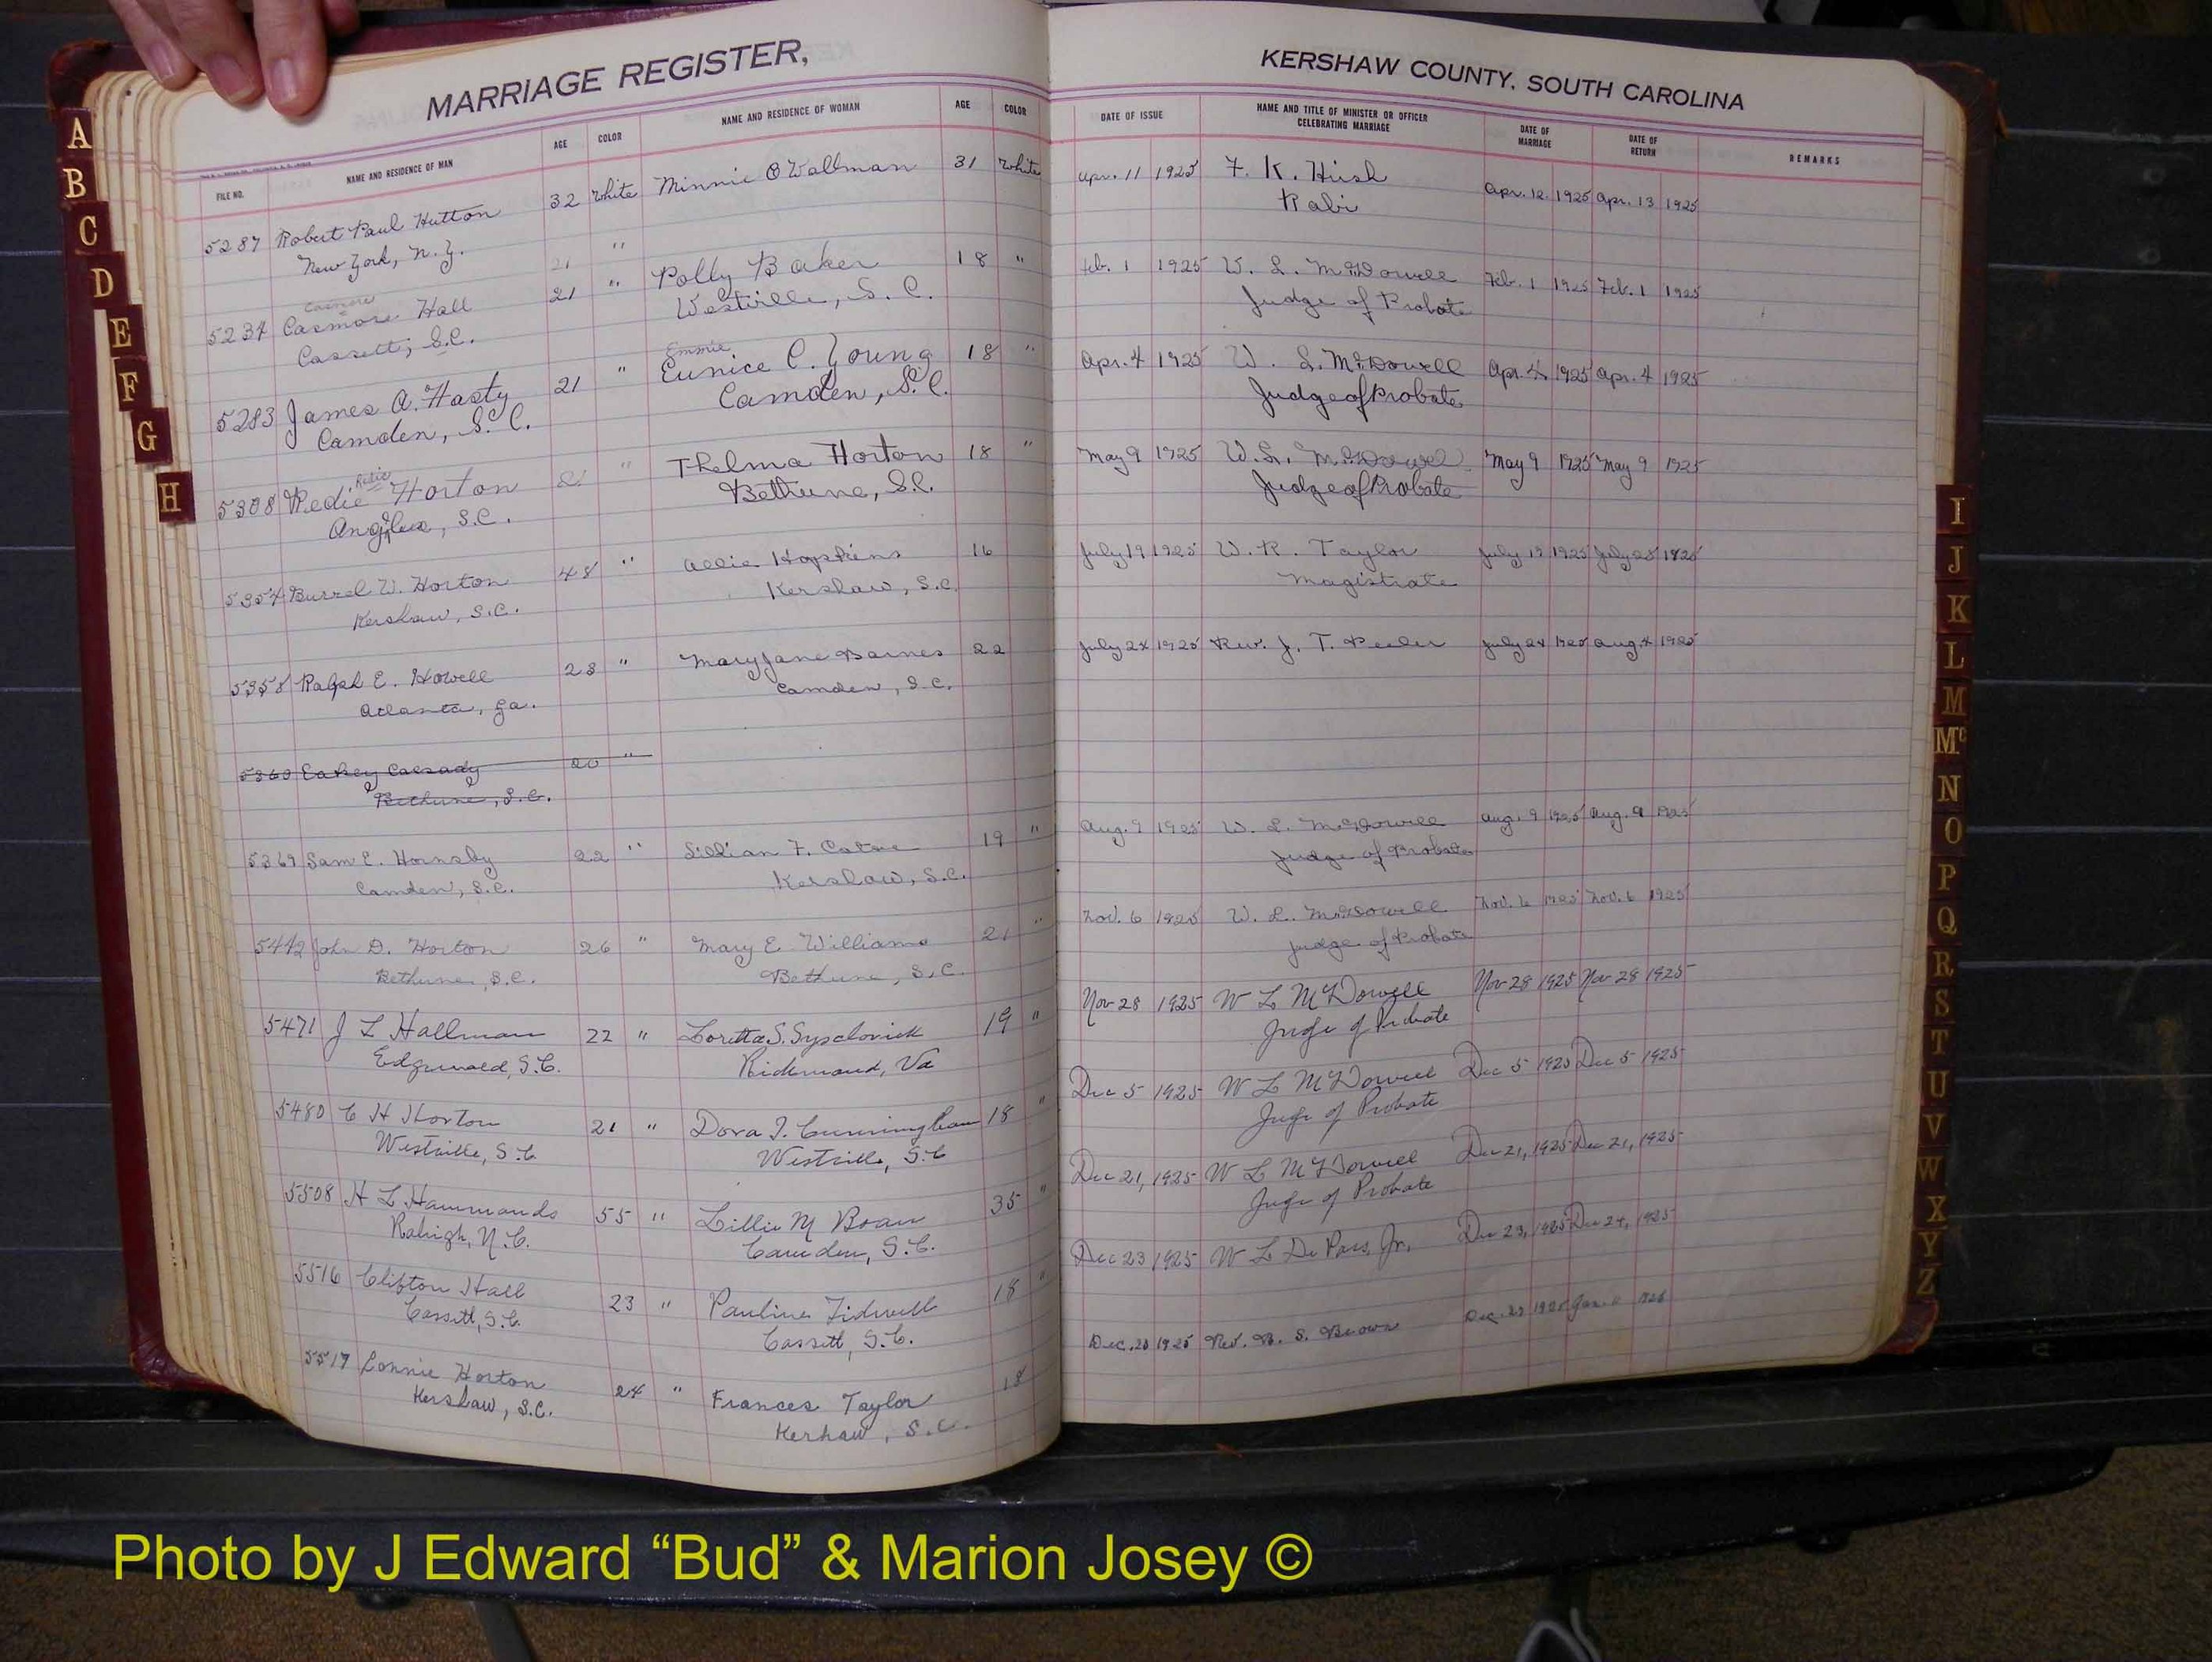 MARRIAGE REGISTER,
FILE NO. NAME AND RESIDENCE OF MAN AGE COLOR NAME AND RESIDENCE OF WOMAN AGE COLOR
5287 Robert Paul Hutton 32 White Minnie Wallman 31 White
New York, N.Y. "
21
5234 Casmore Hall 21 " Polly Baker 18 "
Cassett, S.C. Westville, S.C.
Emmie
5283 James A. Hasty 21 " Eunice C. Young 18 "
Camden, S.C. Camden, S.C.
5308 Redie Horton 21 " Thelma Horton 18 "
S.C. Bethune, S.C.
5354 Burrel W. Horton 48 " Allie Hopkins 16
Kershaw, S.C. Kershaw, S.C.
5358 Ralph E. Howell 23 " Mary Jane Barnes 22
Atlanta, Ga. Camden, S.C.
5360 20 "
Bethune, S.C.
5369 Sam E. Hornsby 22 " Lillian F. 19 "
Camden, S.C. Kershaw, S.C.
5442 John D. Horton 26 " Mary E Williams 21 "
Bethune, S.C. Bethune, S.C.
5471 J L Hallman 22 " Loretta S. 19 "
S.C. Richmond, Va
5480 C H Horton 21 " Dora I. Cunningham 18 "
Westville, S.C Westville, S.C
5508 H L Hammonds 55 " Lillie M 35 "
Raleigh, N.C. Camden, S.C.
5516 Clifton Hall 23 " Pauline Tidwell 18 "
Cassett, S.C. Cassett, S.C.
5517 Lonnie Horton 24 " Frances Taylor 18
Kershaw, S.C. Kerhaw, S.C.
KERSHAW COUNTY, SOUTH CAROLINA
DATE OF ISSUE NAME AND TITLE OF MINISTER OR OFFICER CELEBRATING MARRIAGE DATE OF MARRIAGE DATE OF RETURN REMARKS
Apr. 11 1925 F. K. Hirsh Apr. 12. 1925 Apr. 13 1925
Rabi
Feb. 1 1925 W. L. McDowell Feb. 1 1925 Feb. 1 1925
Judge of Probate
Apr. 4 1925 W. L. McDowell Apr. 4 1925 Apr. 4 1925
Judge of Probate
May 9 1925 W. L. McDowell May 9 1925 May 9 1925
Judge of Probate
July 19 1925 W. R. Taylor July 19 1925 July 25 1925
Magistrate
July 24 1925 Rev. J. T. Peeler July 24 1925 Aug. 4 1925
Aug. 9 1925 W. L. McDowell Aug. 9 1925 Aug. 9 1925
Judge of Probate
Nov. 6 1925 W. L. McDowell Nov. 6 1925 Nov. 6 1925
Judge of Probate
Nov 28 1925 W L McDowell Nov 28 1925 Nov 28 1925
Judge of Probate
Dec 5 1925 W L McDowell Dec 5 1925 Dec 5 1925
Judge of Probate
Dec 21, 1925 W L McDowell Dec 21, 1925 Dec 21, 1925
Judge of Probate
Dec 23 1925 W L De Pass, Jr. Dec 23, 1925 Dec 24, 1925
Dec. 20 1925 Rev. S. Brown Dec. 1925 Jan. 1926
A
B
C
D
E
F
G
H
I
J
K
L
M
Mc
N
O
P
Q
R
S
T
U
V
W
X
Y
Z
Photo by J Edward “Bud” & Marion Josey ©